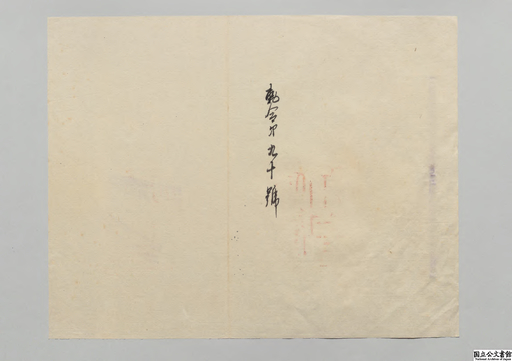 勅令第九十號
国立公文書館
National Archives of Japan